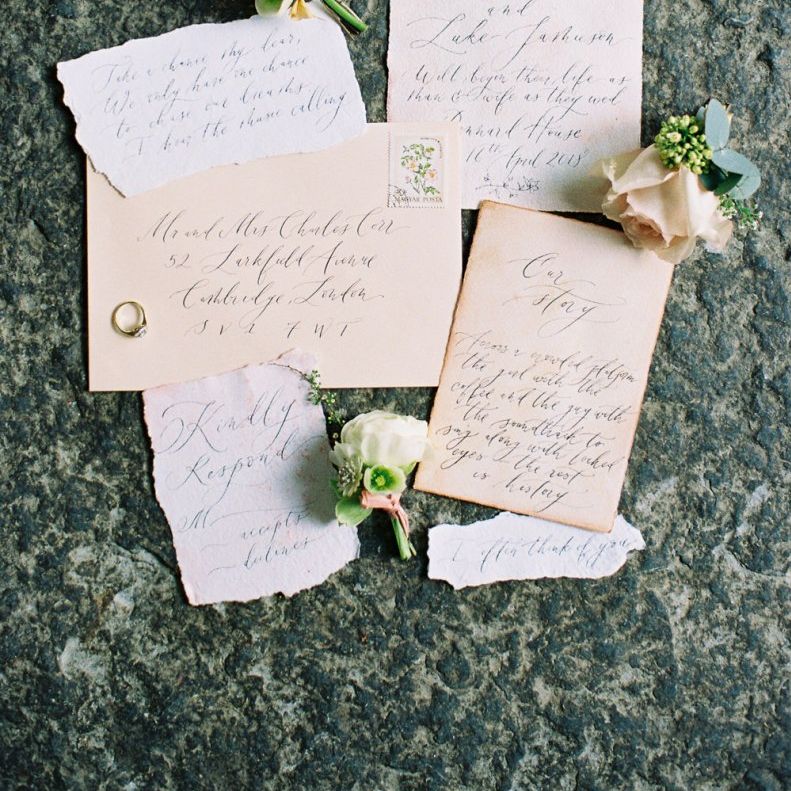 Take a chance my dear,
We only have one chance
to chase our dreams
I hear the music calling
and
Luke Jamieson
Will begin their life as
man & wife as they wed
House
16th April 2018
MAGYAR POSTA
Mr and Mrs Charles Corr
52 Larkfield Avenue
Cambridge, London
SV1 7WT
Our
story
Across a crowded platform
the girl with the
coffee and the guy with
the soundtrack to
sing along with locked
eyes the rest
is history
Kindly
Respond
M
accepts
declines
I often think of you